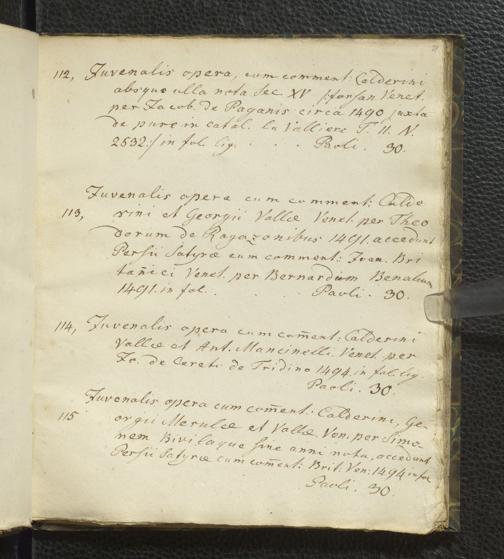 112, Juvenalis opera, cum comment: Calderini
absque ulla nota Sec XV /:forsan Venet.
per Jacob. de Paganis circa 1490 juxta
de pure in catal. la Valliere T. II. N.
2532:/ in fol. lig. . . . Paoli. 30.
Juvenalis opera cum comment: Calde
113, rini et Georgii Vallæ Venet. per Theo
dorum de Ragazonibus 1491. accedunt
Persii Satyræ cum comment: Joan. Bri
tañici Venet. per Bernardinum Benalium
1491. in fol. . . . Paoli. 30.
114, Juvenalis opera cum com̃ent: Calderini
Vallæ et Ant. Mancinelli. Venet. per
Jo. de Cereto de Tridino 1494. in fol. lig.
Paoli. 30.
Juvenalis opera cum com̃ent: Calderini, Ge-
115 orgii Merulæ et Vallæ Ven. per Simo
nem Bivilaqua sine anni nota, accedunt
Persii Satyræ cum com̃ent: Brit: Ven: 1494 in fol
Paoli. 30.